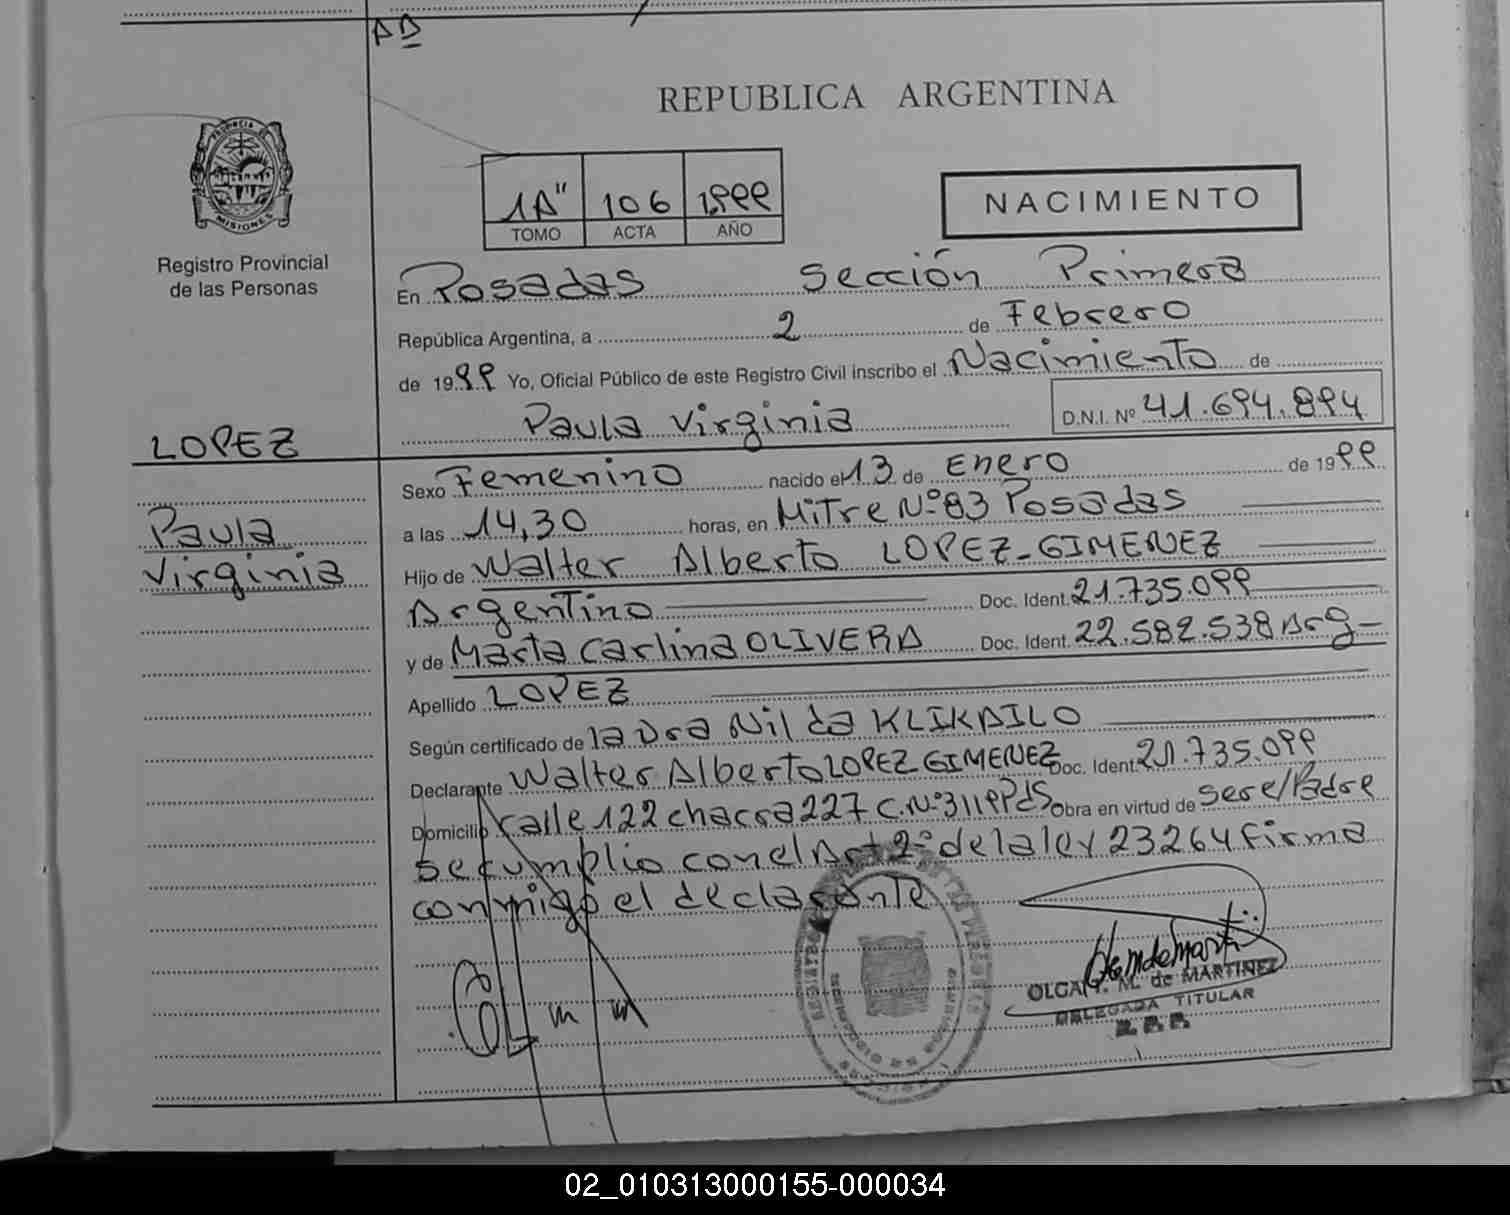 AD
REPUBLICA ARGENTINA
PROVINCIA DE
MISIONES
Registro Provincial
de las Personas
1A" 106 1.999
TOMO ACTA AÑO
NACIMIENTO
En Posadas Sección Primera
República Argentina, a 2 de Febrero
de 1999 Yo, Oficial Público de este Registro Civil inscribo el Nacimiento de
Paula Virginia D.N.I. Nº 41.694.894
LOPEZ
Paula
Virginia
Sexo Femenino nacido el 13 de Enero de 1999
a las 14,30 horas, en Mitre Nº 83 Posadas
Hijo de Walter Alberto LOPEZ-GIMENEZ
Argentino Doc. Ident. 21.735.099
y de Marta Carlina OLIVERA Doc. Ident. 22.582.538 Arg
Apellido LOPEZ
Según certificado de la Dra Nilda KLIKAILO
Declarante Walter Alberto LOPEZ GIMENEZ Doc. Ident. 21.735.099
Domicilio Calle 122 chacra 227 C.Nº 3119 Pds Obra en virtud de ser e/Padre
se cumplio con el Art 2º de la ley 23264 firma
conmigo el declarante
OLGA M. de MARTINEZ
DELEGADA TITULAR
02_010313000155-000034